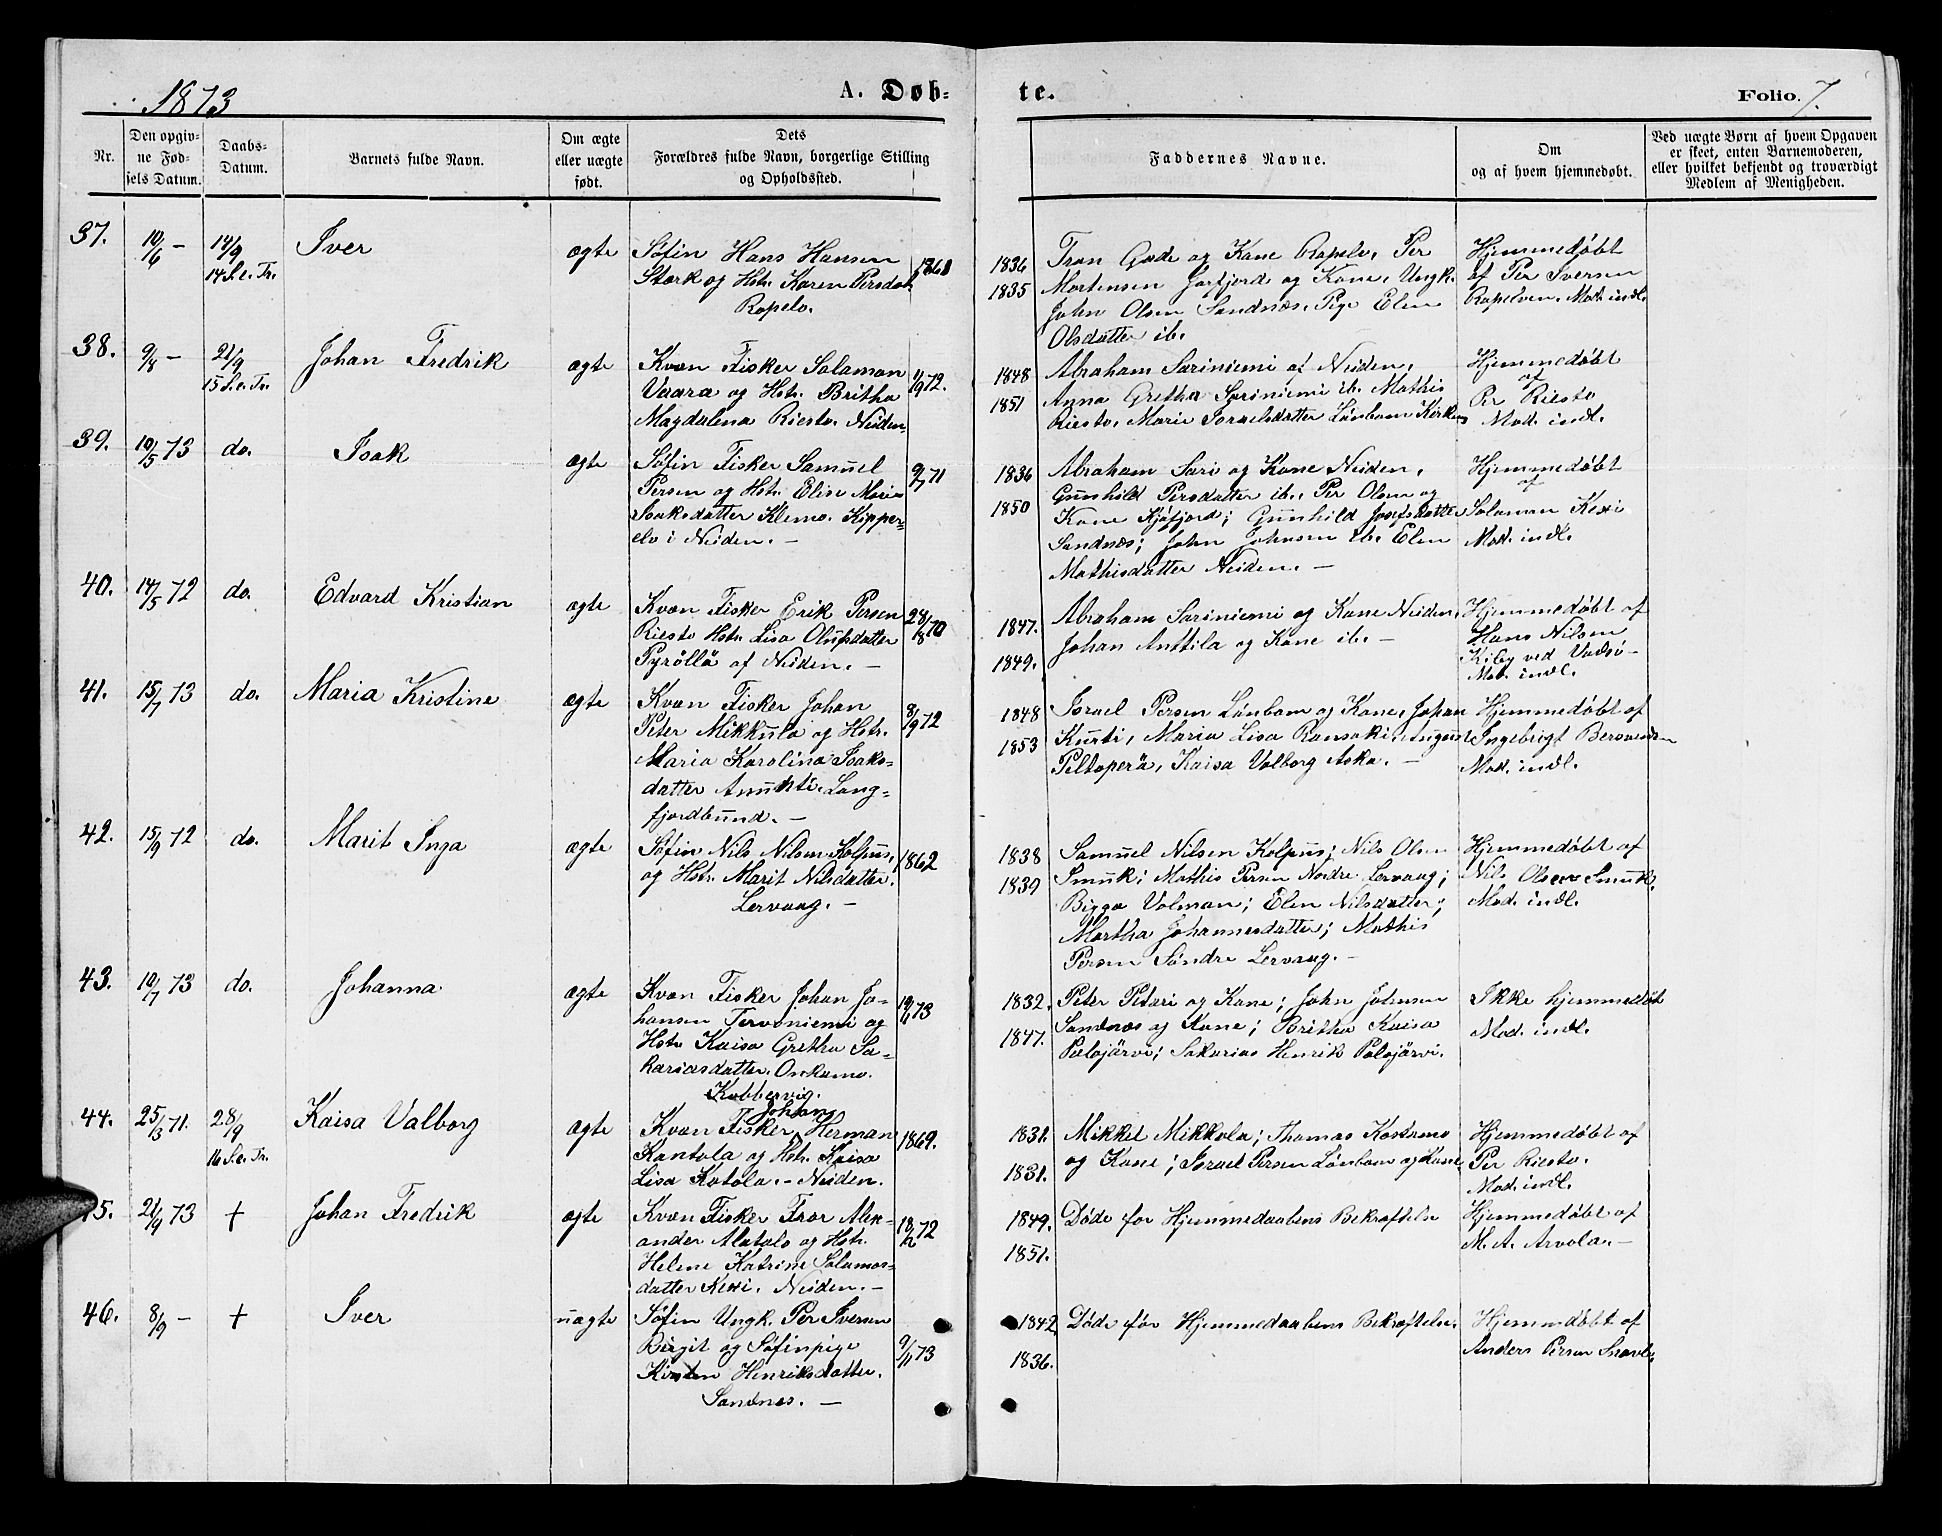 1873
A. Døb-
te.
Folio. 7.
Nr.
Den opgiv-
ne Fød-
sels Datum.
Daabs-
Datum.
Barnets fulde Navn.
Om ægte
eller uægte
født.
Dets
Forældres fulde Navn, borgerlige Stilling
og Opholdssted.
Faddernes Navne.
Om
og af hvem hjemmedøbt.
Ved uægte Børn af hvem Opgaven
er skeet, enten Barnemoderen,
eller hvilket bekjendt og troværdigt
Medlem af Menigheden.
37.
10/6 -
14/9
14 S. e. Tr.
Iver
ægte
Søfin Hans Hansen
Stork og Hstr. Karen Persdat.
Ropelv.
1836
1835
Tron Gade og Kone Ropelv, Per
Mortensen Jarfjord og Kone, Ungk.
John Olsen Sandnæs, Pige Elen
Olsdatter ib.
Hjemmedøbt
af Per Iversen
Ropelven. Mod. indl.
38.
9/8 -
21/9
15 S. e. Tr.
Johan Fredrik
ægte
Kvæn Fisker Salamon
Vaara og Hstr. Britha
Magdalena Riesto. Neiden-
72.
1848
1851
Abraham Sariniemi af Neiden,
Anna Gretha Sariniemi ib. Mathis
Riesto, Marie Israelsdatter Lønbom Kirkenes
Hjemmedøbt
af
Per Riesto
Mod. indl.
39.
10/5 73
do.
Isak
ægte
Søfin Fisker Samuel
Persen og Hstr. Elise Marie
Isaksdatter Klemo. Kipper-
elv i Neiden. -
9/7 71
1836
1850
Abraham Sari og Kone Neiden,
Gunhild Persdatter ib., Per Olsen og
Kone Kjøfjord; Gunhild Josefsdatter
Sandnæs; John Johnsen ib. Elen
Mathisdatter Neiden. -
Hjemmedøbt
af
Salamon Kexi
Mod. indl.
40.
14/5 72
do.
Edvard Kristian
ægte
Kvæn Fisker Erik Persen
Riesto Hstr. Lisa Olufsdatter
Pyröllä af Neiden. -
28/8 70
1847.
1849.
Abraham Sariniemi og Kone Neiden,
Johan Anttila og Kone ib. -
Hjemmedøbt af
Hans Nilsen
Kiby ved Vadsø -
Mod. indl.
41.
15/7 73
do.
Maria Kristine
ægte
Kvæn Fisker Johan
Peter Mikkula og Hstr.
Maria Karolina Isaks-
datter. Lang-
fjordbund. -
8/9 72
1848
1853
Israel Persen Lønbom og Kone, Johan
Kurti, Maria Lisa August
Peltoperä, Kaisa Valborg Aska. -
Hjemmedøbt af
Ingebrigt Bersvendsen
Mod. indl.
42.
15/9 72
do.
Marit Inga
ægte
Søfin Nils Nilsen Kolpus,
og Hstr. Marit Nilsdatter.
Lervaag. -
1862
1838
1839
Samuel Nilsen Kolpus; Nils Olsen
Smuk; Mathis Persen Nordre Lervaag;
Bigga Volman; Elen Nilsdatter;
Martha Johannesdatter; Mathis
Persen Søndre Lervaag. -
Hjemmedøbt af
Nils Olsen Smuk.
Mod. indl.
43.
10/7 73
do.
Johanna
ægte
Kvæn Fisker Johan Jo-
hansen Tervoniemi og
Hstr. Kaisa Gretha Sa-
kariasdatter. Onkamo.
Kobbervig.
73
1832.
1847.
Peter Petäri og Kone; John Johnsen
Sandnæs og Kone; Britha Kaisa
Palojärvi; Sakarias Henrik Palojärvi.
Ikke hjemmedøbt
Mod. indl.
44.
25/3 71.
28/9
16 S. e. Tr.
Kaisa Valborg
ægte
Johan
Kvæn Fisker Herman
Kantola og Hstr. Kaisa
Lisa Kotola. - Neiden.
1869.
1831.
1831.
Mikkel Mikkola; Thomas Kostamo
og Kone; Israel Persen Lønbom og Kone
Hjemmedøbt af
Per Riesto.
Mod. indl.
45.
21/9 73
+
Johan Fredrik
ægte
Kvæn Fisker Fror Alex-
ander Alatalo og Hstr.
Helene Katrine Salamos-
datter Kexi. Neiden. -
72
1849.
1851.
Døde før Hjemmedaabens Bekræftelse
Hjemmedøbt af
M. A. Arvola. -
46.
8/9 -
+
Iver
uægte
Søfin Ungk. Per Iversen
Birgit og Søfinpige
Kirsten Henriksdatter.
Sandnes. -
9/11 73
1842
1836.
Døde før Hjemmedaabens Bekræftelse.
Hjemmedøbt af
Anders Persen